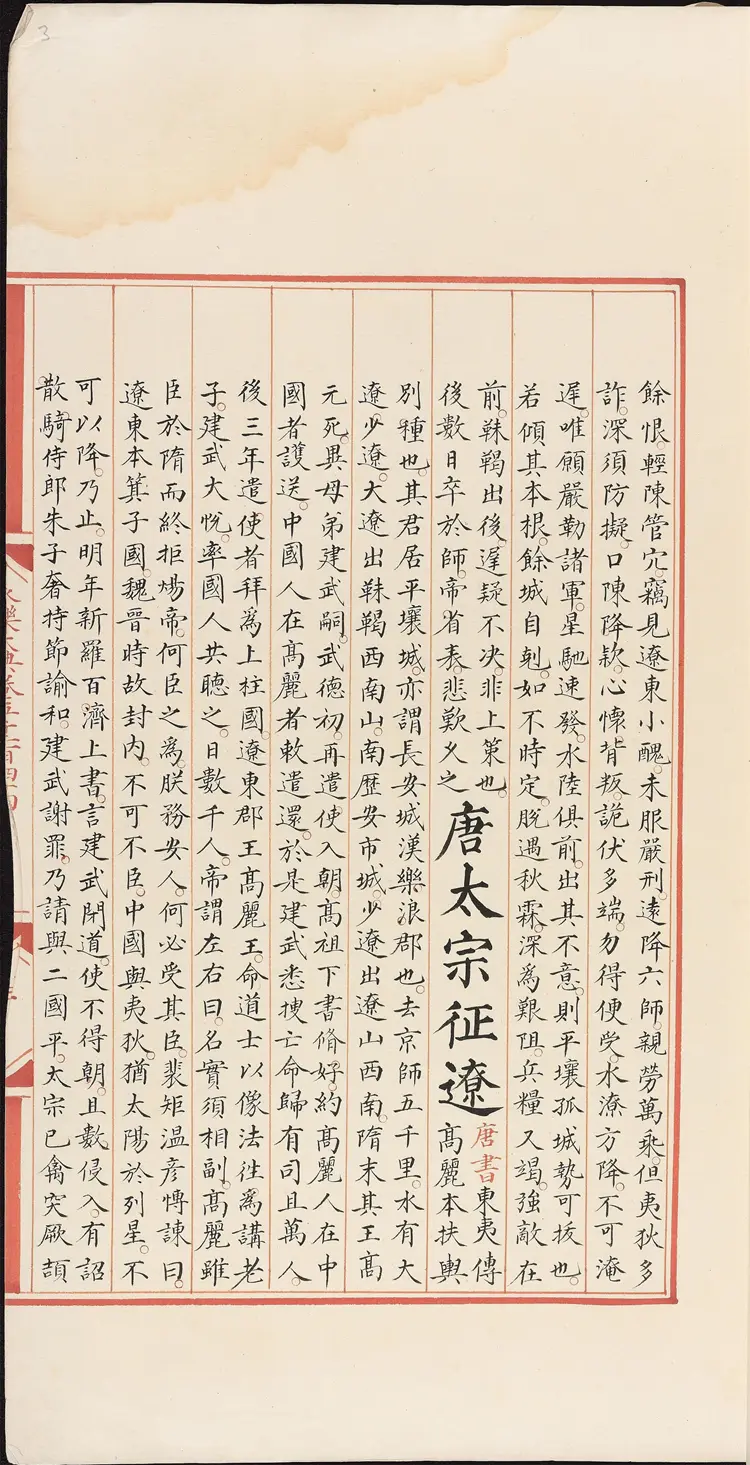 餘恨。輕陳管穴。竊見遼東小醜。未服嚴刑。遠降六師。親勞萬乘。但夷狄多
詐。深須防擬。口陳降款。心懷背叛。詭伏多端。勿得便受。水潦方降。不可淹
遲。唯願嚴勒諸軍。星馳速發。水陸俱前。出其不意。則平壤孤城。勢可拔也。
若傾其本根。餘城自剋。如不時定。脫遇秋霖。深為艱阻。兵糧又竭。強敵在
前。靺鞨出後。遲疑不决。非上策也。
後數日卒於師。帝省表。悲歎久之
唐太宗征遼
唐書東夷傳
髙麗本扶輿
別種也。其君居平壤城。亦謂長安城。漢樂浪郡也。去京師五千里。水有大
遼少遼。大遼出靺鞨西南山。南歴安市城。少遼出遼山西南。隋末其王髙
元死。異母弟建武嗣。武德初。再遣使入朝。髙祖下書脩好。約髙麗人在中
國者護送。中國人在髙麗者敕遣還。於是建武悉搜亡命歸有司。且萬人。
後三年遣使者拜為上柱國。遼東郡王髙麗王。命道士以像法往為講老
子。建武大悅。率國人共聽之。日數千人。帝謂左右曰。名實須相副。髙麗雖
臣於隋而終拒煬帝。何臣之為。朕務安人。何必受其臣。裴矩温彦愽諌曰。
遼東本箕子國。魏晉時故封内。不可不臣。中國與夷狄。猶太陽於列星。不
可以降。乃止。明年新羅百濟上書。言建武閉道。使不得朝。且數侵入。有詔
散騎侍郎朱子奢持節諭和。建武謝罪。乃請與二國平。太宗已禽突厥頡
3